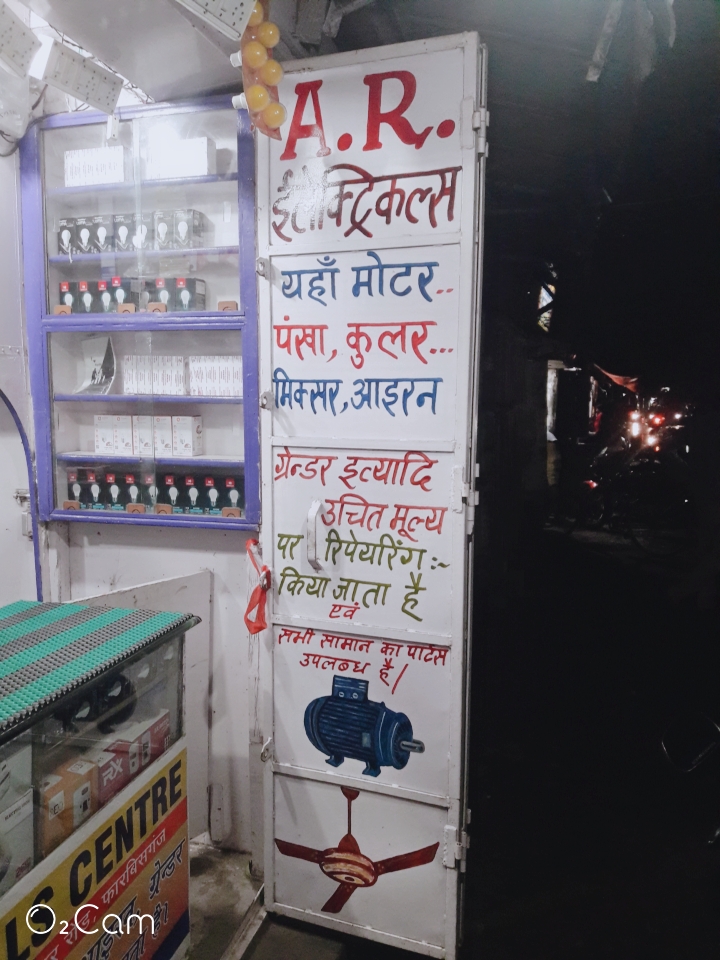 A.R.
ईलेक्ट्रिकल्स
यहाँ मोटर..
पंखा, कुलर...
मिक्सर, आइरन
ग्रेन्डर इत्यादि
उचित मूल्य
पर रिपेयरिंग :-
किया जाता है
एवं
सभी सामान का पार्टस
उपलबध है/
LS CENTRE
रोड, फारबिसगंज
ग्रेन्डर
है।
O₂Cam